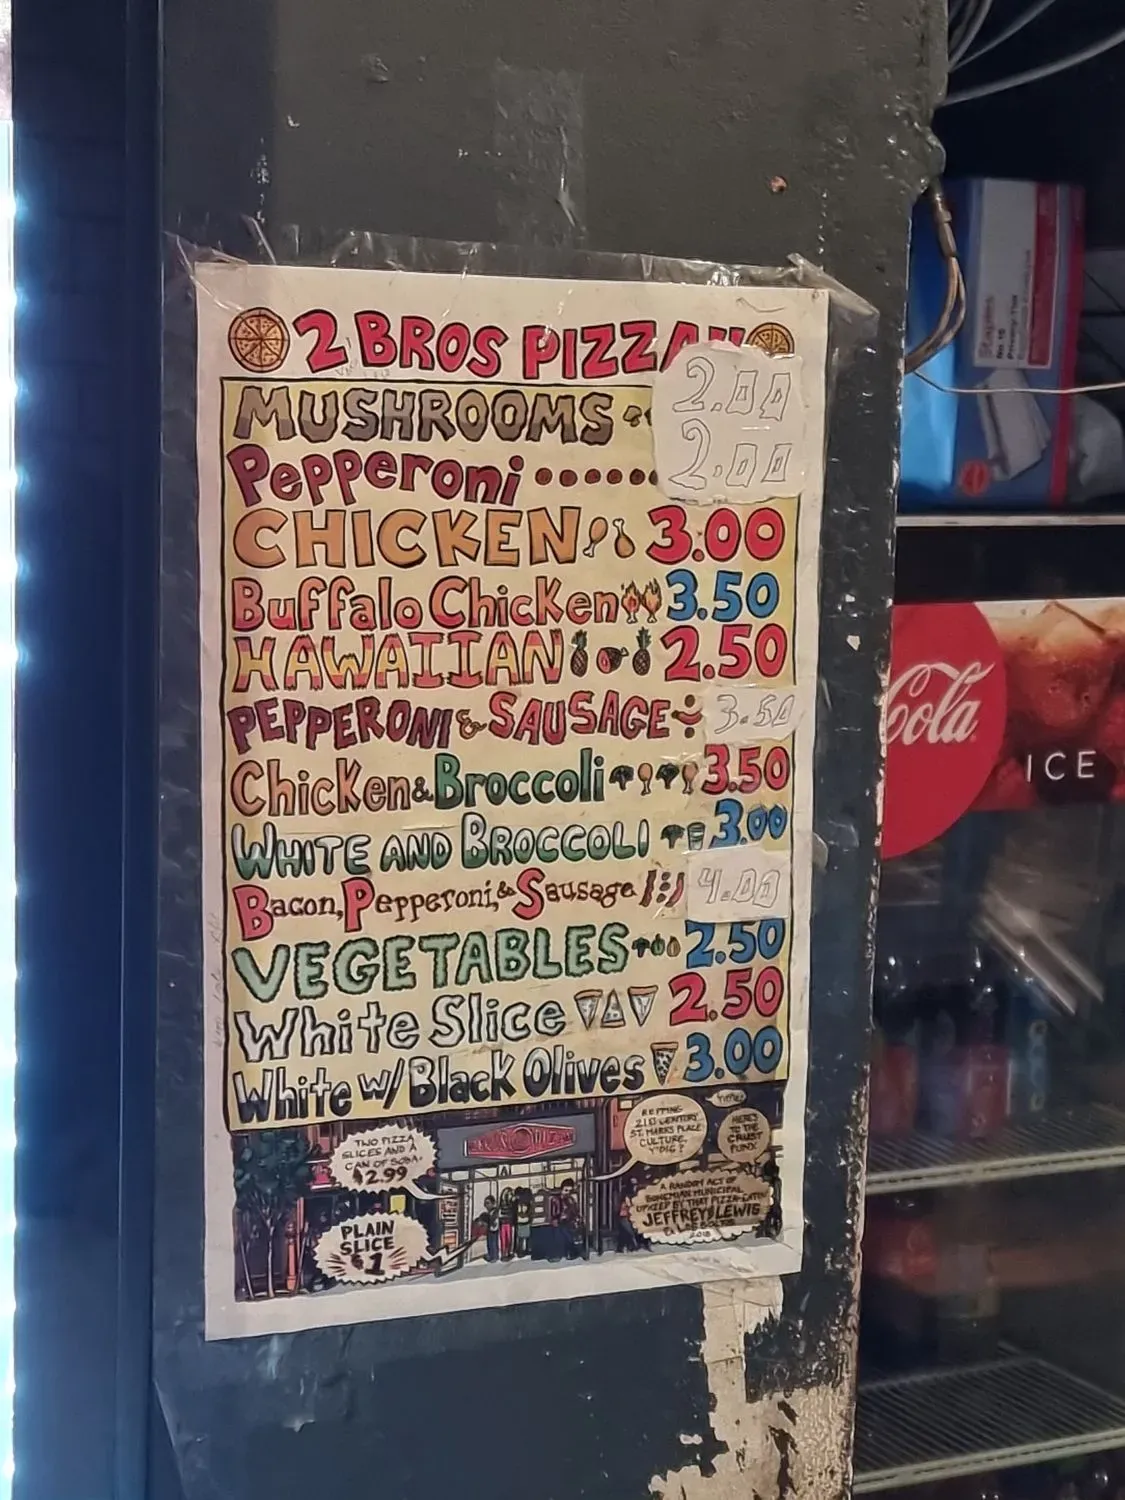 2 BROS PIZZA
MUSHROOMS 2.00
Pepperoni 2.00
CHICKEN 3.00
Buffalo Chicken 3.50
HAWAIIAN 2.50
PEPPERONI & SAUSAGE 3.50
Chicken & Broccoli 3.50
WHITE AND BROCCOLI 3.00
Bacon, Pepperoni, & Sausage 4.00
VEGETABLES 2.50
White Slice 2.50
White w/ Black Olives 3.00
TWO PIZZA
SLICES AND A
CAN OF SODA:
$2.99
PLAIN
SLICE
$1
REPPING
21ST CENTURY
ST. MARKS PLACE
CULTURE,
Y'DIG?
HERE'S
TO THE
CRUST
PUNX
A RANDOM ACT OF
BOHEMIAN MUNICIPAL
BY THAT PIZZA EATIN'
JEFFREY LEWIS
2018
Cola
ICE